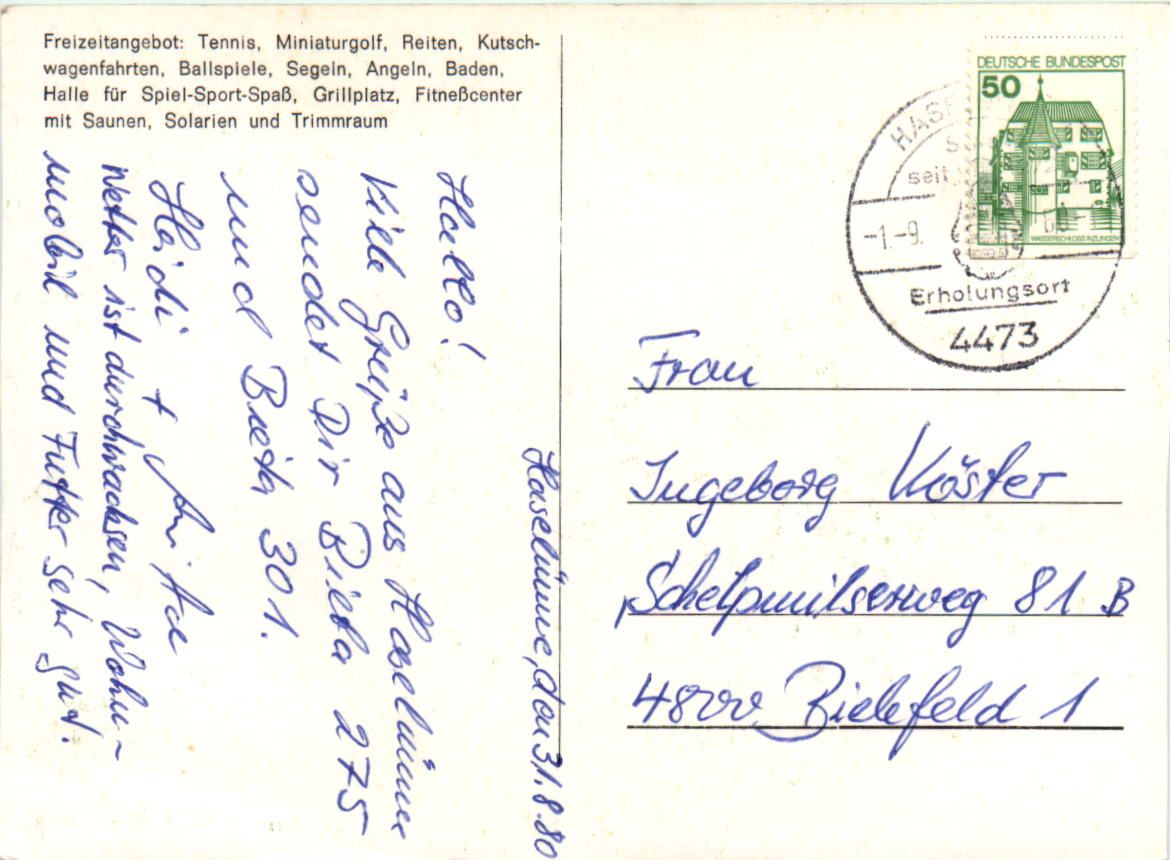 Freizeitangebot: Tennis, Miniaturgolf, Reiten, Kutsch-
wagenfahrten, Ballspiele, Segeln, Angeln, Baden,
Halle für Spiel-Sport-Spaß, Grillplatz, Fitneßcenter
mit Saunen, Solarien und Trimmraum
Haselünne, den 31.8.80
Hallo!
Viele Grüße aus Haselünne
sendet Dir Bieta 275
und Bieta 301.
Heidi +
Wetter ist durchwachsen, Wohn-
mobil und Futter sehr gut.
DEUTSCHE BUNDESPOST
50
WASSERSCHLOSS INZLINGEN
seit
-1.-9.
Erholungsort
4473
Frau
Ingeborg Köster
Schelpmilserweg 81 B
4800 Bielefeld 1